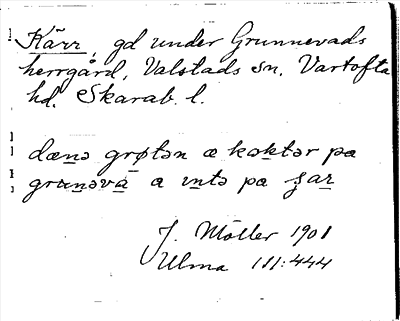 Kärr, gd under Grunnevads
herrgård, Valstads sn. Vartofta
hd. Skarab. l.
dænə grøtən æ kɔktər pa
grunəvà a ıntə pa ʂær
J. Möller 1901
Ulma 111:444